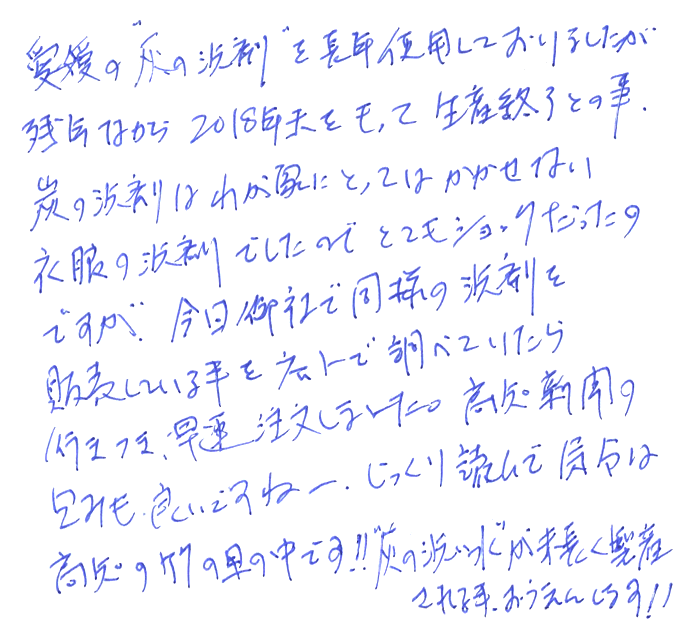 愛媛の"炭の洗剤"を長年使用しておりましたが
残念ながら2018年末をもって生産終了との事.
炭の洗剤はわが家にとってはかかせない
衣服の洗剤でしたのでとてもショックだったの
ですが、今日御社で同様の洗剤を
販売している事をネットで調べていたら
行きつき、早速注文しました。高知新聞の
包みも良いですねー.じっくり読んで気分は
高知の竹の里の中です!!"炭の洗い水"が末長く製産
される事、おうえんします!!